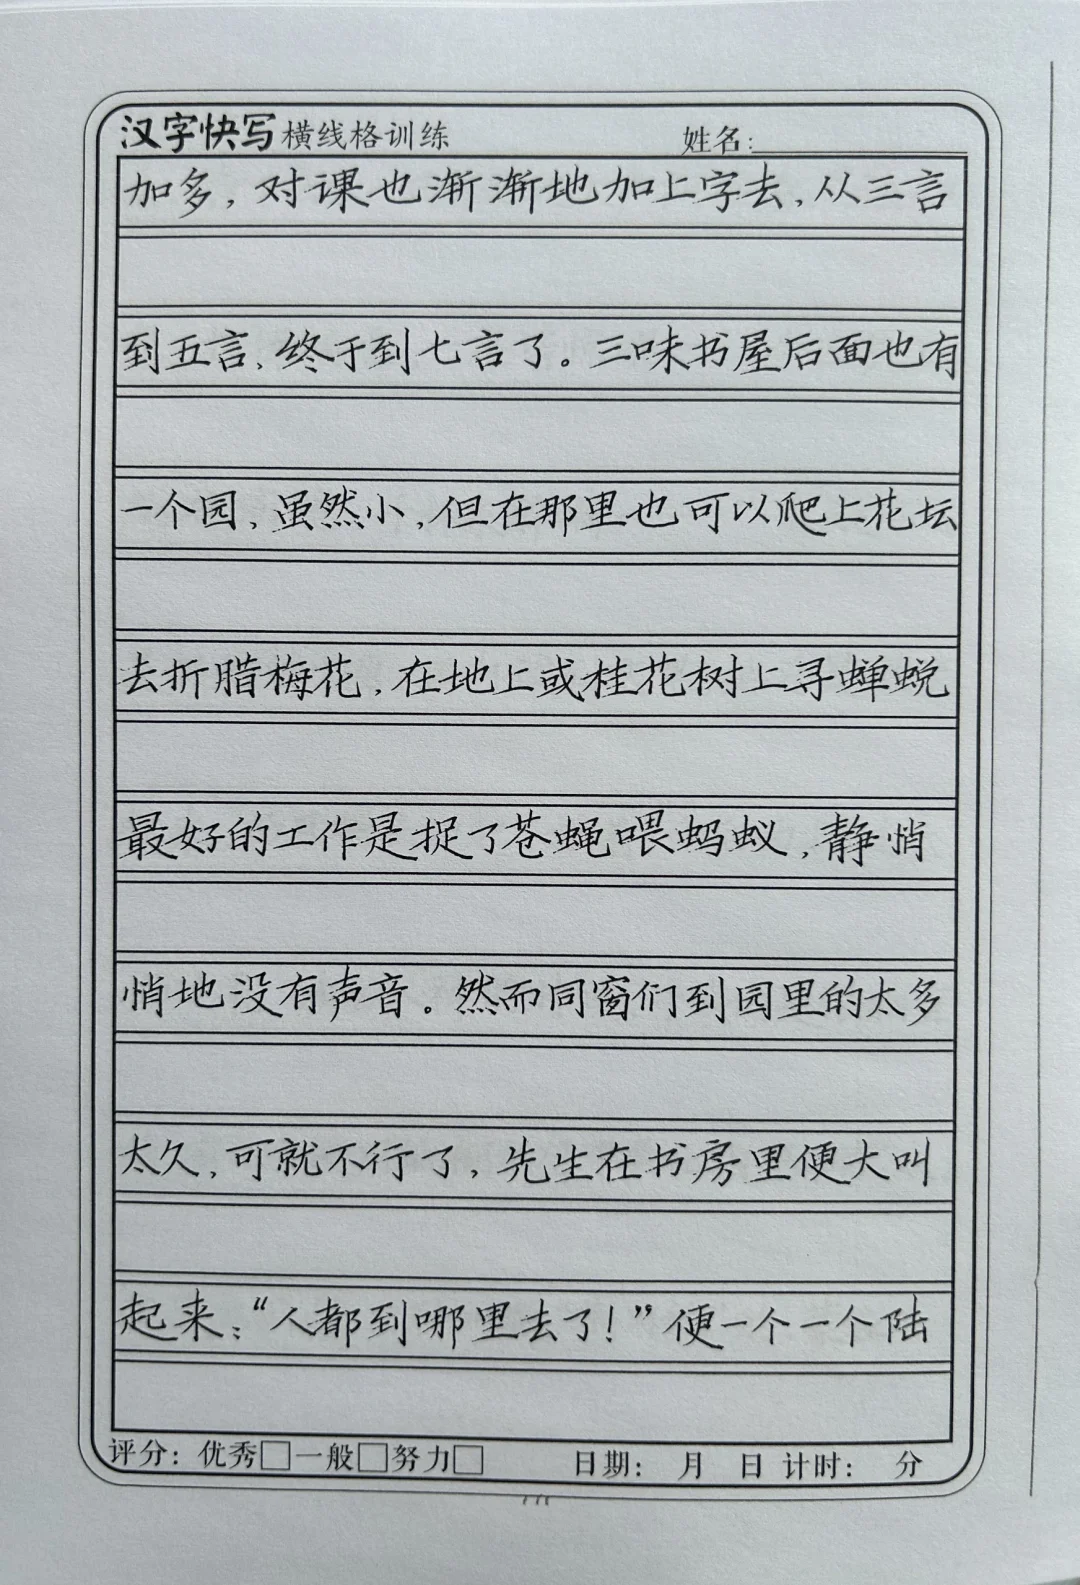 汉字快写 横线格训练 姓名:
加多，对课也渐渐地加上字去，从三言
到五言，终于到七言了。三味书屋后面也有
一个园，虽然小，但在那里也可以爬上花坛
去折腊梅花，在地上或桂花树上寻蝉蜕
最好的工作是捉了苍蝇喂蚂蚁，静悄
悄地没有声音。然而同窗们到园里的太多
太久，可就不行了，先生在书房里便大叫
起来：“人都到哪里去了！”便一个一个陆
评分：优秀□一般□努力□ 日期： 月 日 计时： 分